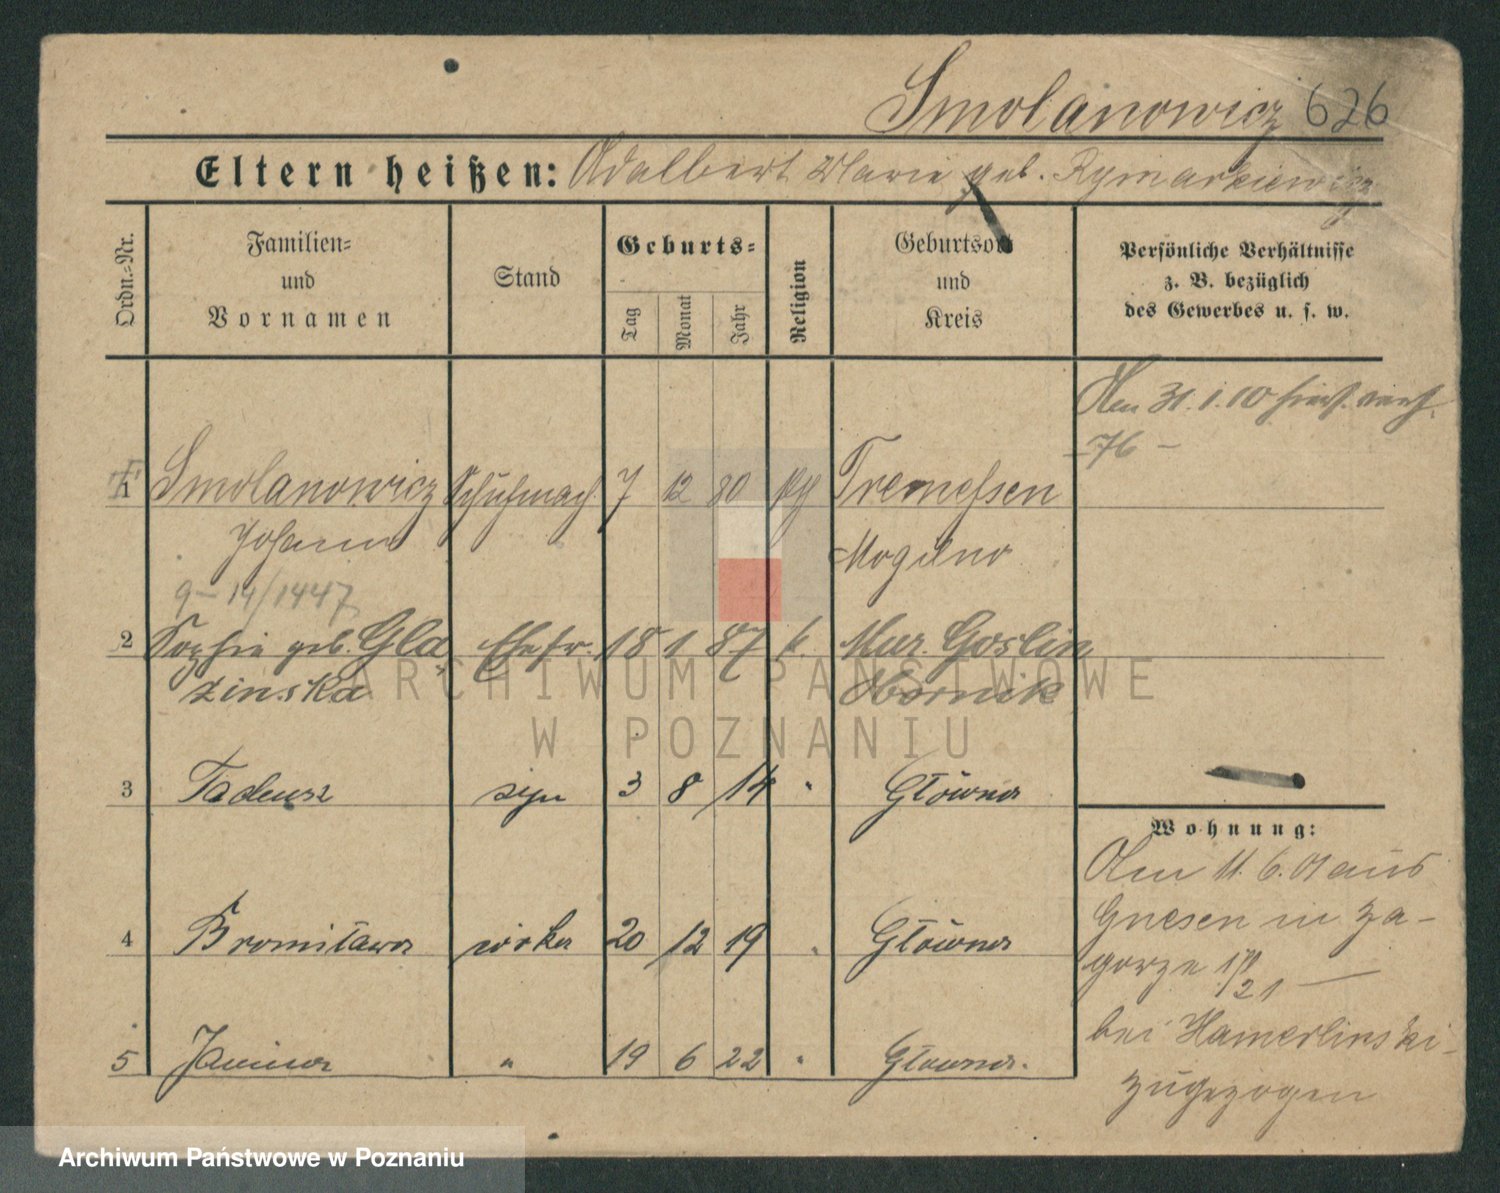 Smolanowicz 626
Eltern heißen: Adalbert Marie geb. Rymarkiewicz
Ordn.-Nr.
Familien-
und
Vornamen
Stand
Geburts-
Tag
Monat
Jahr
Religion
Geburtsort
und
Kreis
Persönliche Verhältnisse
z. B. bezüglich
des Gewerbes u. s. w.
Am 31.1.10 hier verh.
76 -
1 Smolanowicz Schuhmach. 7 12 80 Tremessen
Johann Mogilno
9-14/1447
2 Sophie geb. Gla Ehefr. 18 1 87 k. Mur. Goslin
zinska Obornik
3 Tadeusz syn 3 8 14 " Główna
4 Bronisława córka 20 12 19 " Główna
5 Janina " 19 6 22 " Główna.
Wohnung:
Am 11.6.01 aus
Gnesen in Za-
gorze
21 -
bei Hamerlinski
zugezogen
ARCHIWUM PAŃSTWOWE
W POZNANIU
Archiwum Państwowe w Poznaniu